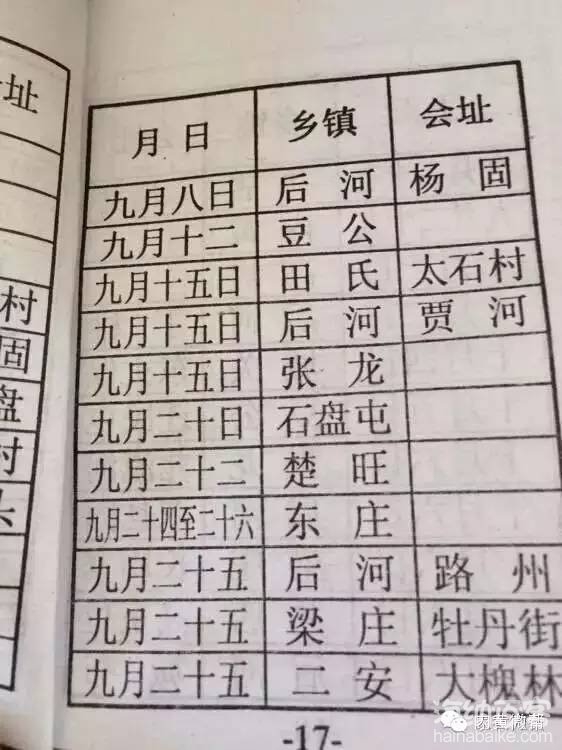 址
村
固
盘
村
月 日 乡镇 会址
九月八日 后河 杨固
九月十二 豆公
九月十五日 田氏 太石村
九月十五日 后河 贾河
九月十五日 张龙
九月二十日 石盘屯
九月二十二 楚旺
九月二十四至二十六 东庄
九月二十五 后河 路州
九月二十五 梁庄 牡丹街
九月二十五 二安 大槐林
-17-
hainabaike.com